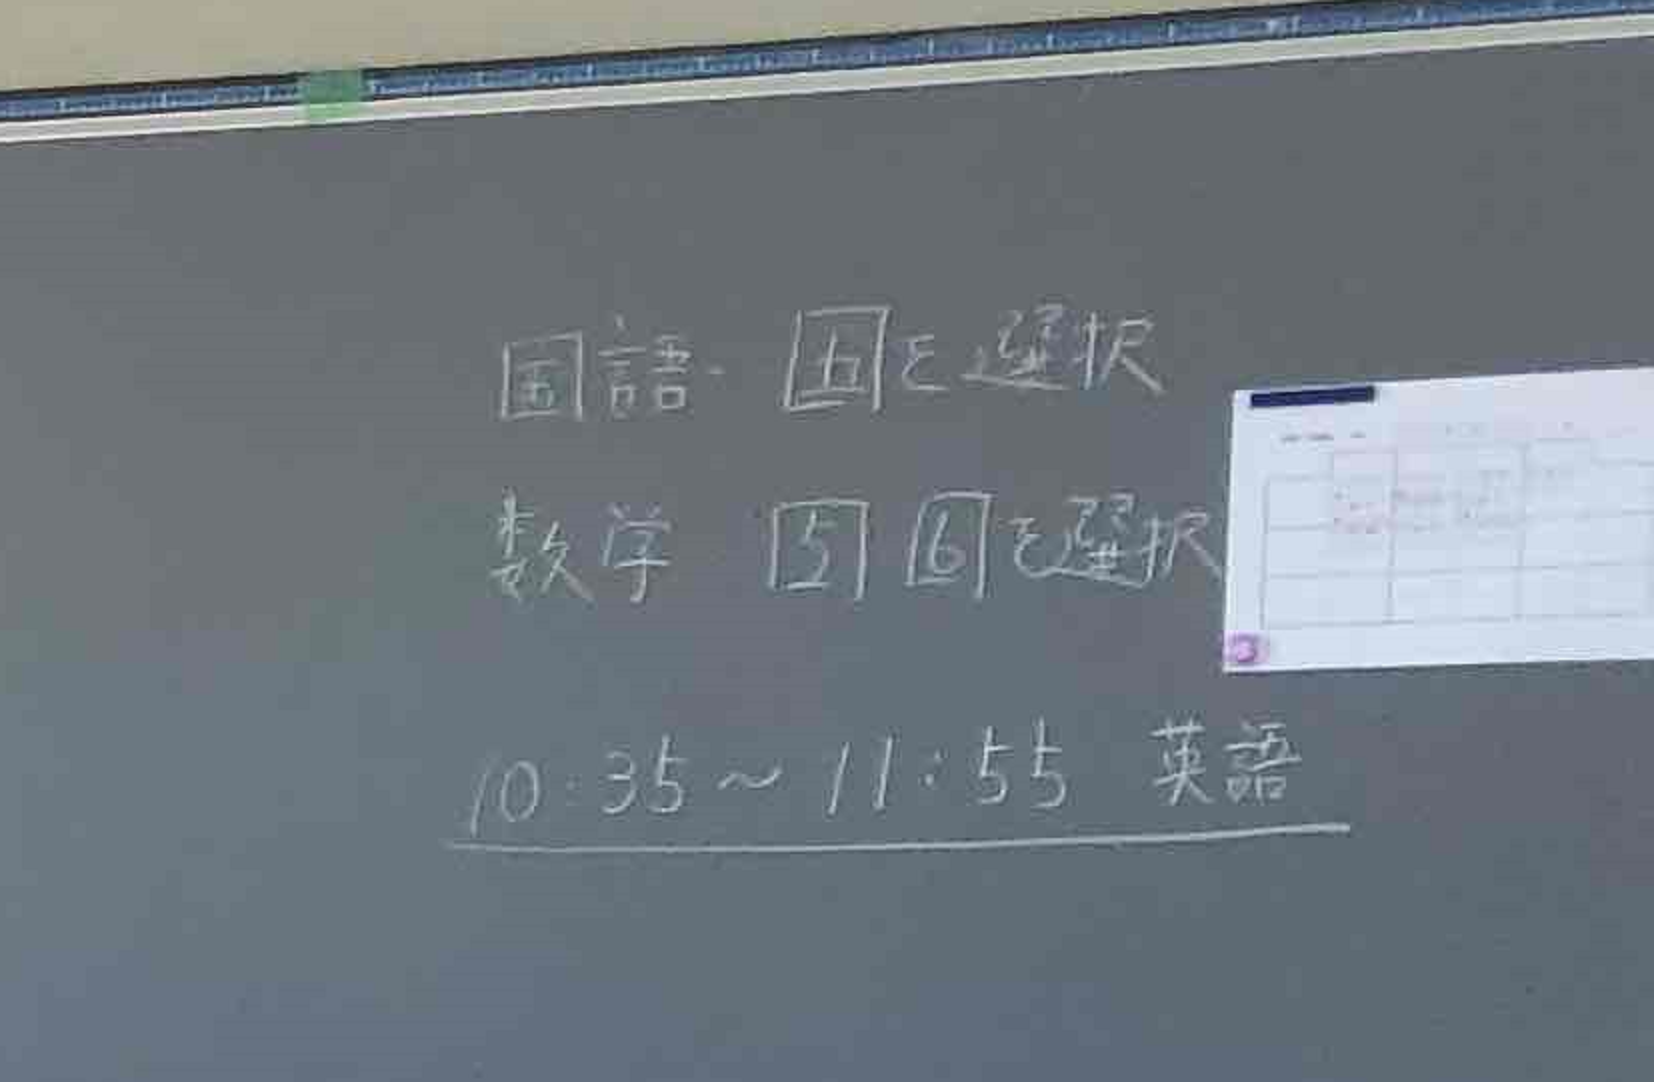 国語 五を選択
数学 5 6を選択
10:35〜11:55 英語